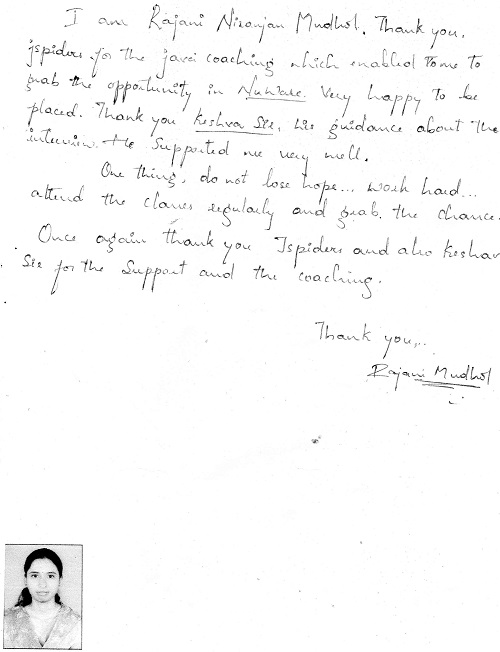 I am Rajani Niranjan Mudhol. Thank you.
jspiders for the java coaching which enabled me to
grab the opportunity in NuWare. Very happy to be
placed. Thank you Keshva Sir, his guidance about the
interview. He Supported me very well.
One thing, do not lose hope... work hard...
attend the classes regularly and grab the chance.
Once again thank you Jspiders and also Keshav
Sir for the Support and the coaching.
Thank you,..
Rajani Mudhol